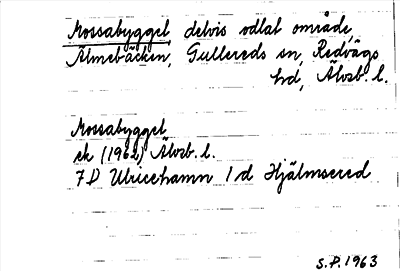 Mossabygget, delvis odlat område,
Älmebäcken, Gullereds sn, Redvägs
hd, Älvsb. l.
Mossabygget
ek (1962) Älvsb. l.
7D Ulricehamn 1d Hjälmsered
S.P. 1963